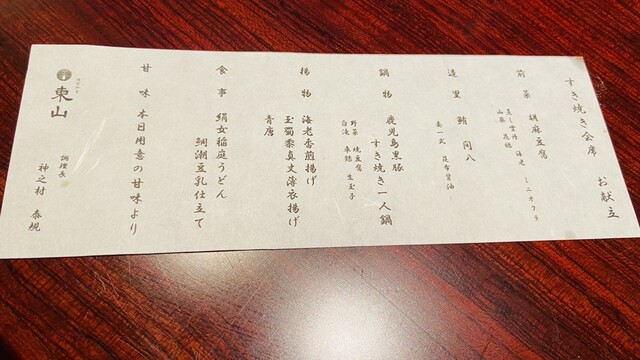 すき焼き会席　お献立
前菜　胡麻豆腐
蒸し雲丹　海老　ミニオクラ
山葵　花穂
造里　鮪　間八
妻一式　昆布醤油
鍋物　鹿児島黒豚
すき焼き一人鍋
野菜　焼豆腐
白滝　車麩　生玉子
揚物　海老香煎揚げ
玉蜀黍真丈薄衣揚げ
青唐
食事　絹女稲庭うどん
鯛潮豆乳仕立て
甘味　本日用意の甘味より
東山
調理長
神之村　泰規